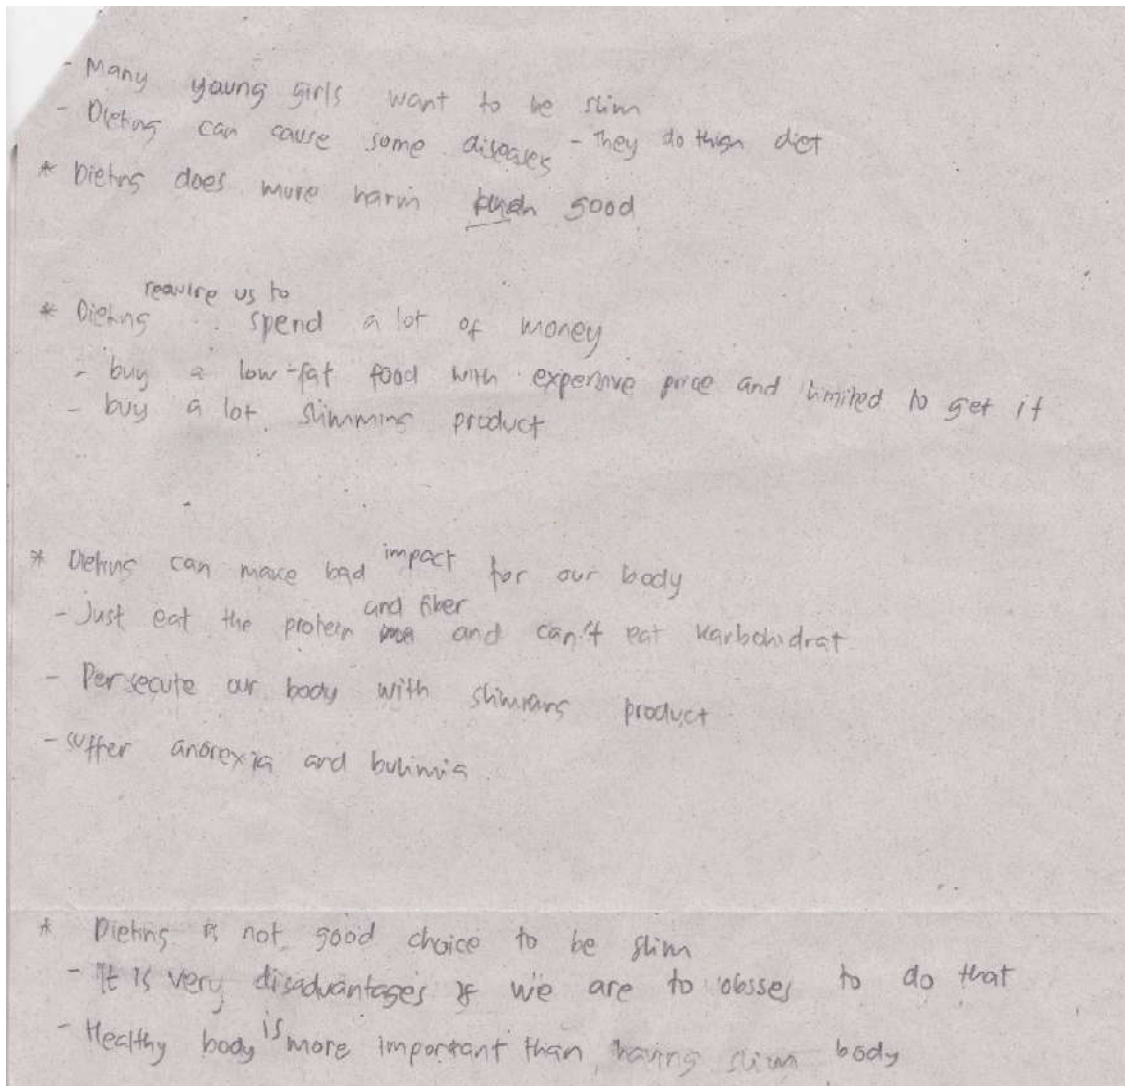 - Many young girls want to be slim
- Dieting can cause some diseases - They do diet
* Dieting does more harm good
require us to
* Dieting spend a lot of money
- buy a low-fat food with expensive price and limited to get it
- buy a lot slimming product
* Dieting can make bad impact for our body
- Just eat the protein and fiber and can't eat karbohidrat
- Persecute our body with product
- suffer anorexia and bulimia
* Dieting is not good choice to be slim
- It is very disadvantages if we are to obsses to do that
- Healthy body is more important than having slim body